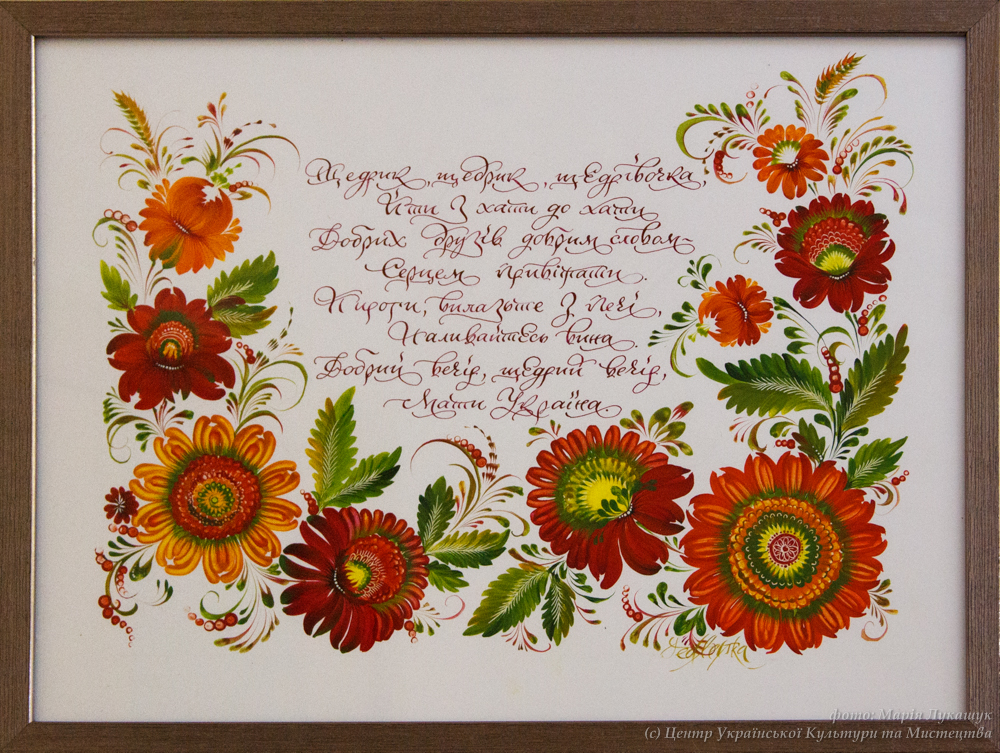 Щедрик, щедрик, щедрівочка,
Йти з хати до хати
Добрих друзів добрим словом
Серцем привітати.
Пироги, вилазьте з печі
Наливайтесь вина.
Добрий вечір, щедрий вечір,
Мати Україна.
фото: Марія Лукащук
(с) Центр Української Культури та Мистецтва